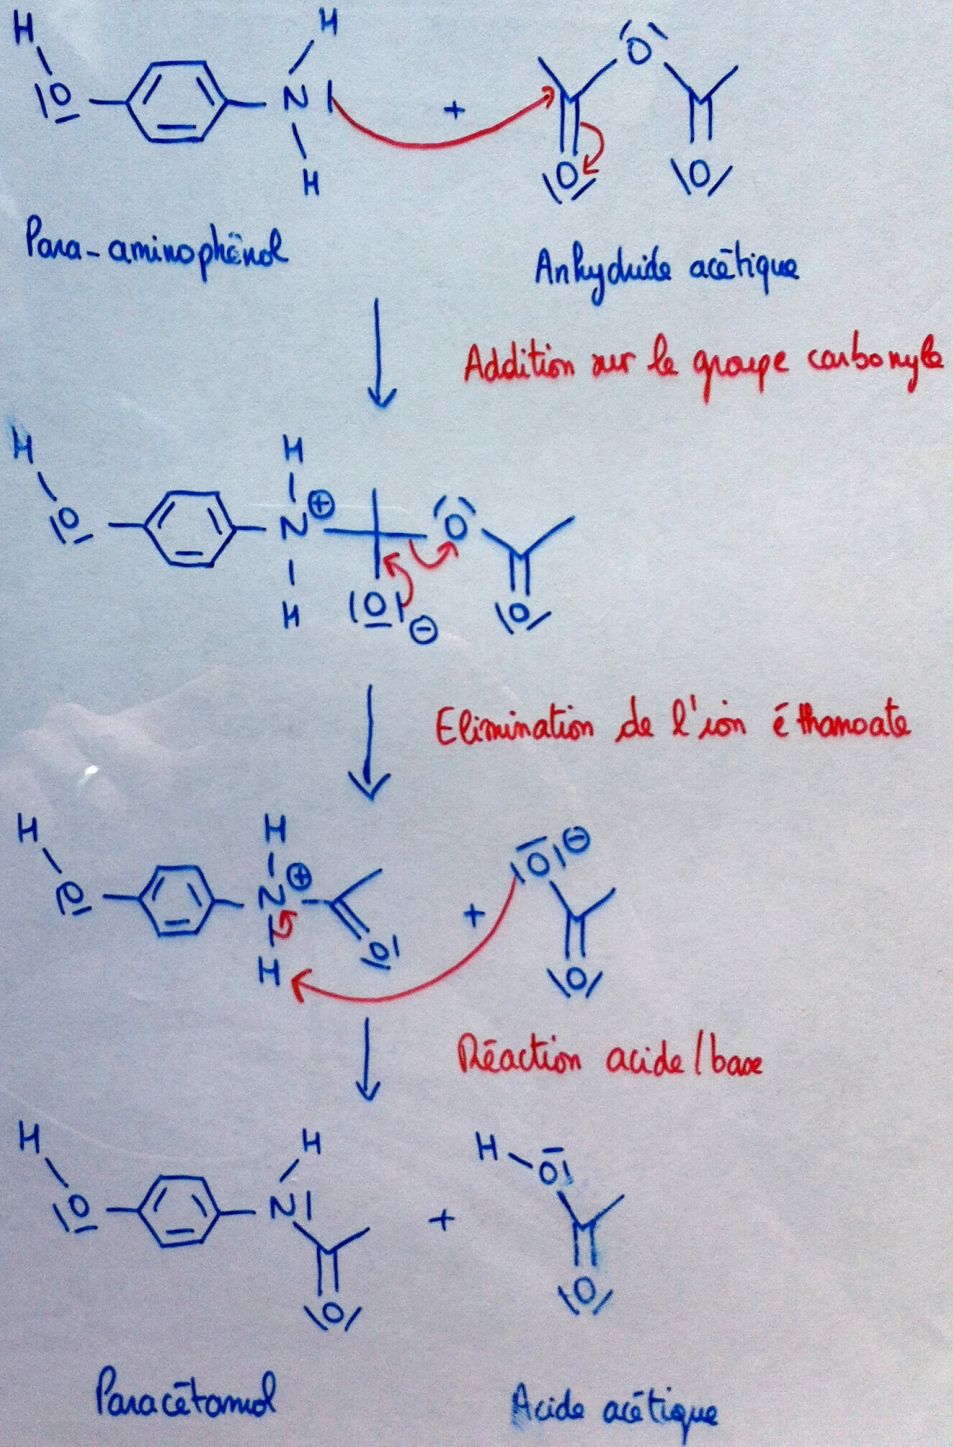 H
H
|O̲ N | + O
H
|O| |O|
Para-aminophénol
Anhydride acétique
Addition sur le groupe carbonyle
H H
O N ⊕ O
H |O| ⊖ |O|
Elimination de l'ion éthanoate
H H |O| ⊖
O N ⊕ +
H O |O|
Réaction acide/base
H H H
O N| + O|
|O| |O|
Paracétamol
Acide acétique